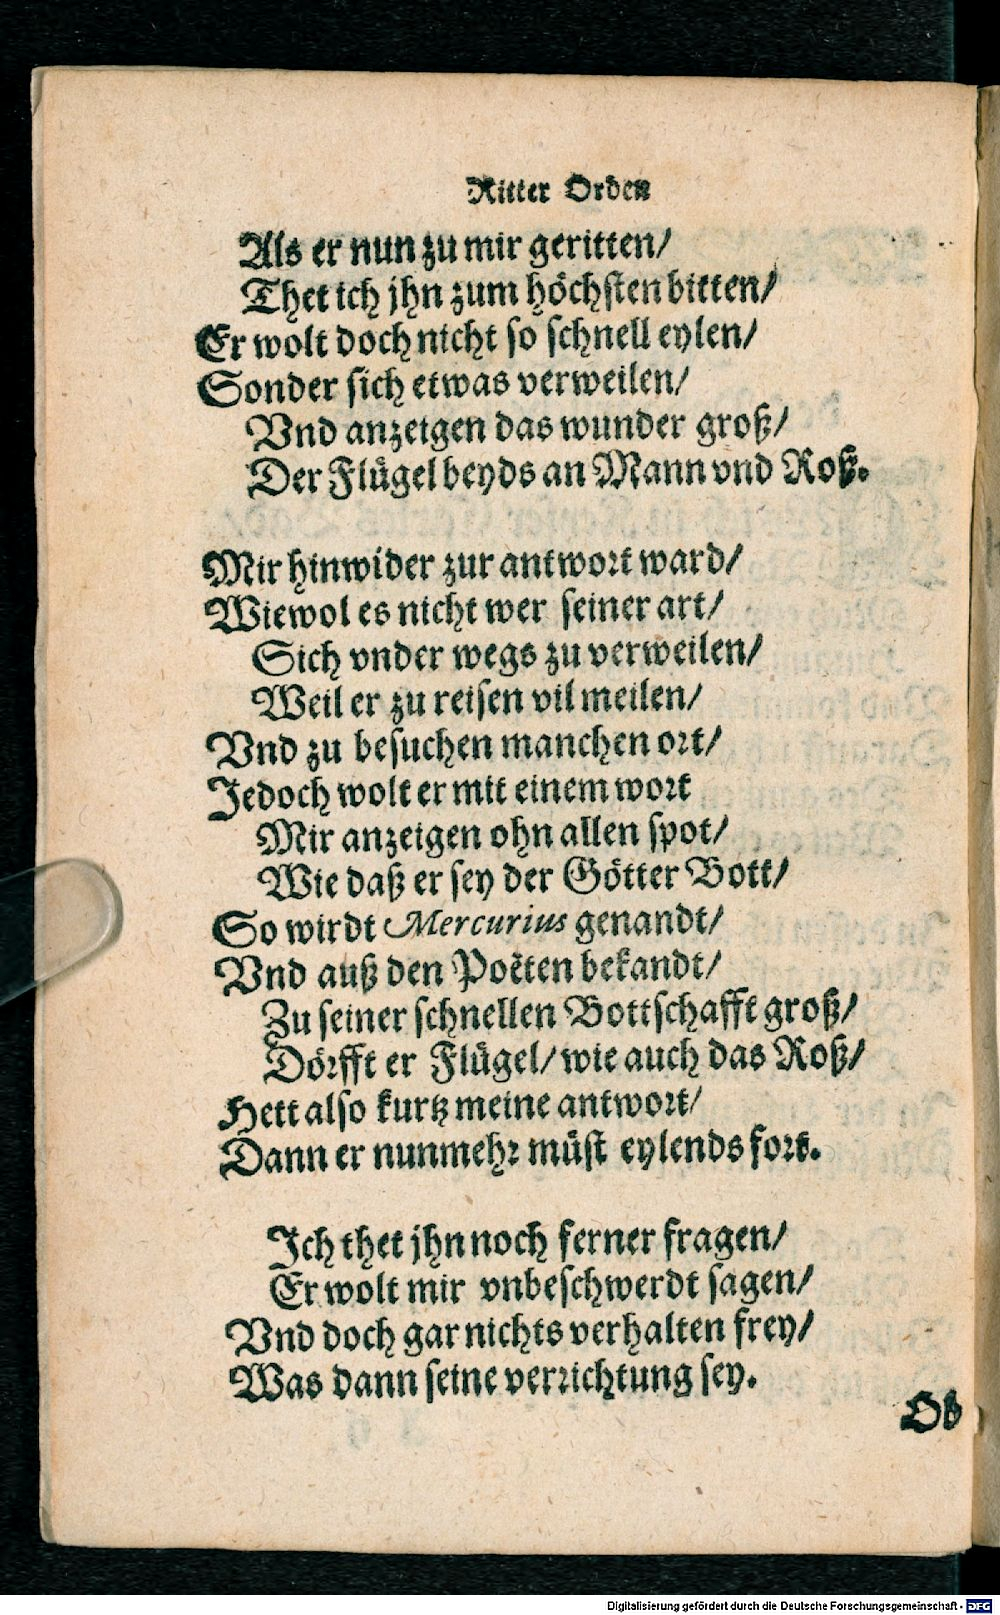 Ritter Orden
Als er nun zu mir geritten/
Thet ich jhn zum höchsten bitten/
Er wolt doch nicht so schnell eylen/
Sonder sich etwas verweilen/
Vnd anzeigen das wunder groß/
Der Flügel beyds an Mann vnd Roß.
Mir hinwider zur antwort ward/
Wiewol es nicht wer seiner art/
Sich vnder wegs zu verweilen/
Weil er zu reisen vil meilen/
Vnd zu besuchen manchen ort/
Jedoch wolt er mit einem wort
Mir anzeigen ohn allen spot/
Wie daß er sey der Götter Bott/
So wirdt Mercurius genandt/
Vnd auß den Poëten bekandt/
Zu seiner schnellen Bottschafft groß/
Dörfft er Flügel/ wie auch das Roß/
Hett also kurtz meine antwort/
Dann er nunmehr müst eylends fort.
Ich thet jhn noch ferner fragen/
Er wolt mir vnbeschwerdt sagen/
Vnd doch gar nichts verhalten frey/
Was dann seine verrichtung sey.
Ob
Digitalisierung gefördert durch die Deutsche Forschungsgemeinschaft - DFG